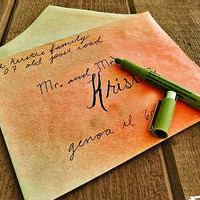 kerstie family
07 old post road
Mr. and Mrs.
Krist
genoa il 60